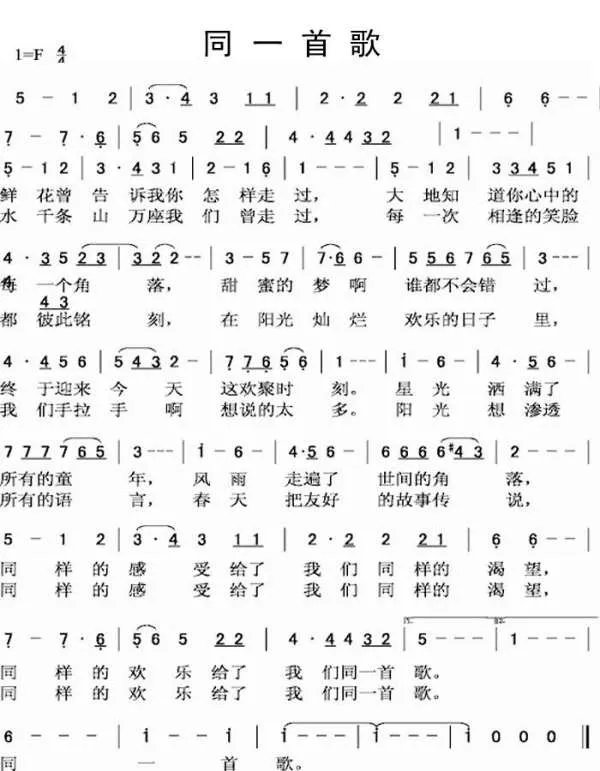 同一首歌
1=F 4/4
5 - 1 2 | 3 · 4 3 1 1 | 2 · 2 2 2 1 | 6 6 - - |
7 - 7 · 6 | 5 6 5 2 2 | 4 · 4 4 3 2 | 1 - - - |
5 - 1 2 | 3 · 4 3 1 | 2 - 1 6 | 1 - - - | 5 - 1 2 | 3 3 4 5 1 |
鲜 花曾 告 诉我你 怎样走 过, 大 地知 道你心中的
水 千条 山 万座我 们 曾走 过, 每 一次 相逢的笑脸
4 · 3 5 2 3 | 3 2 2 - - | 3 - 5 7 | 7 · 6 6 - | 5 5 6 7 6 5 | 3 - - - |
每 一个角 落, 甜 蜜的 梦 啊 谁都不会错 过,
4 3
都 彼此铭 刻, 在 阳光 灿 烂 欢乐的日子 里,
4 · 4 5 6 | 5 4 3 2 - | 7 7 6 5 6 5 | 1 - - - | i - 6 - | 4 · 5 6 - |
终 于迎来 今 天 这欢聚时 刻。 星 光 洒 满了
我 们手拉 手 啊 想说的太 多。 阳 光 想 渗透
7 7 7 7 7 6 5 | 3 - - - | i - 6 - | 4 · 5 6 - | 6 6 6 6 #4 3 | 2 - - - |
所有的童 年, 风 雨 走遍了 世间的角 落,
所有的语 言, 春 天 把友好 的故事传 说,
5 - 1 2 | 3 · 4 3 1 1 | 2 · 2 2 2 1 | 6 6 - - |
同 样 的 感 受给了 我 们 同样的 渴望,
同 样 的 感 受给了 我 们 同样的 渴望,
7 - 7 · 6 | 5 6 5 2 2 | 4 · 4 4 3 2 | 1. 5 - - - | 2. 1 - - - |
同 样 的 欢 乐 给了 我 们同一首 歌。
同 样 的 欢 乐 给了 我 们同一首 歌。
6 - - - | i - i - | i - - - | i - - - | i 0 0 0 ‖
同 一 首 歌。